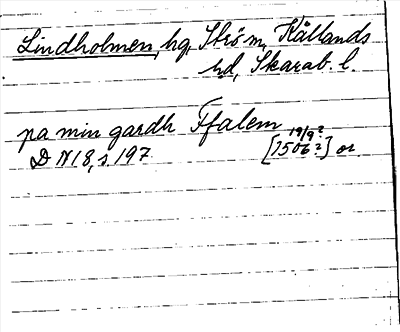 Lindholmen, hg, Ström, Kållands
hd, Skarab. l.
pa min gardh Ffalem
19/9?
DN 18, s 197. [1506?] or